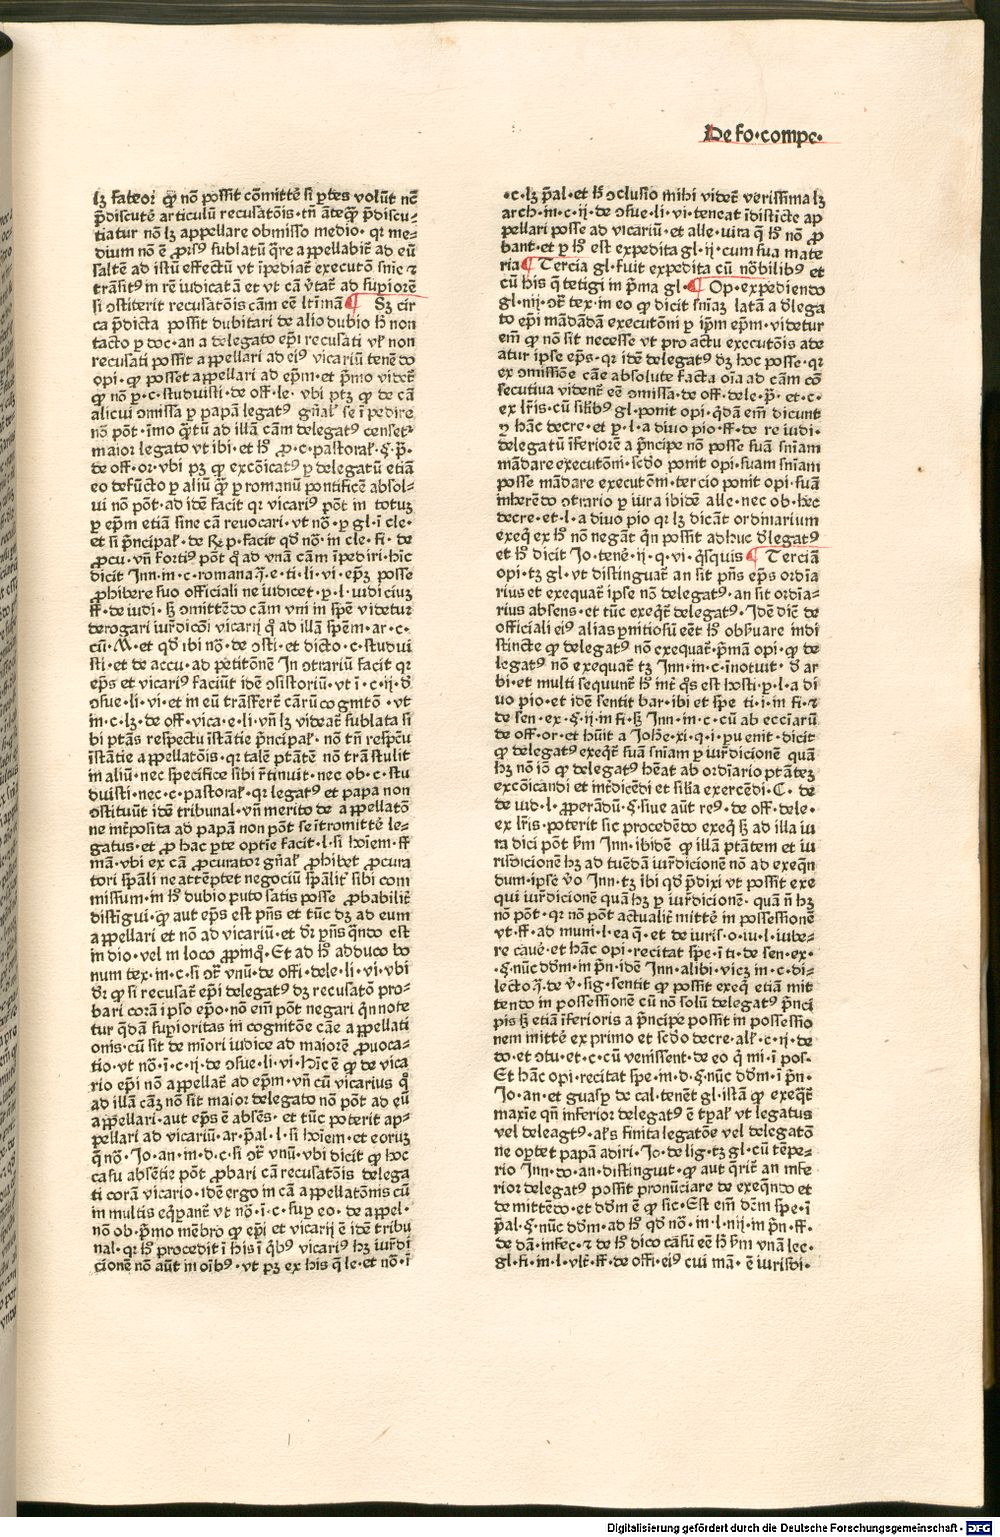 De fo·compe·
lꝫ fateor ꝙ nō possit cōmittē si ꝑtes volūt nē
p̄discutē articulū recusatōis·tn̄ āteꝙ̄ p̄discu⸗
tiatur nō lꝫ appellare obmisso medio· qꝛ me⸗
dium nō ē ꝓrsꝰ sublatū q̄re appellabit̄ ad eū
saltē ad istū effectū vt īpediat̄ executō snīe ⁊
trāsitꝰ in rē iudicatā et vt cā v̄tat̄ ad suꝑiorē
si ꝯstiterit recusatōis cām eē lr̄timā ¶ Sꝫ cir
ca p̄dicta possit dubitari de alio dubio hͦ non
tacto ꝑ doc·an a delegato ep̄i recusati vl̓ non
recusati possit appellari ad eiꝰ vicariū tenēdo
opi·ꝙ posset appellari ad ep̄m·et p̄mo videt̄
ꝙ nō ꝑ·c·studuisti·de off·le· vbi ptꝫ ꝙ de cā
alicui ꝯmissa ꝑ papā legatꝰ gn̄al̓ se īpedire
nō pōt·īmo q̄tū ad illā cām delegatꝰ censet̄
maior legato vt ibi·et hͦ ꝓ·c·pastoral̓·§·p̄·
de off·or·vbi pꝫ ꝙ excōicatꝰ ꝑ delegatū etiā
eo defūcto ꝑ aliū ꝙ̄ ꝑ romanū pontificē absol⸗
ui nō pōt·ad idē facit qꝛ vicariꝰ pōt in totuꝫ
ꝑ ep̄m etiā sine cā reuocari·vt nō·ꝑ gl·ī cle·
et si p̄ncipal̓·de Rͤp·facit qd̄ nō·in cle·fi·de
ꝓcu·vn̄ fortiꝰ pōt qͦ ad vnā cām īpediri·hīc
dicit Inn·in·c·romana·q̄·e·ti·li·vi·ep̄ꝫ posse
ꝓhibere suo officiali ne iudicet·ꝑ·l·iudiciuꝫ
ff·de iudi·sꝫ ꝯmittēdo cām vni in spē videtur
derogari iur̄dicōi vicarij qͦ ad illā spēm·ar·c·
cū·M·et qd̄ ibi nō·de ꝯsti·et dicto·c·studui
sti·et de accu·ad petitōnē In ꝯtrariū facit qꝛ
ep̄s et vicariꝰ faciūt idē ꝯsistoriū·vt ī·c·ij·d̄
ꝯsue·li·vi·et in eū trāsfert̄ cārū cogmtō·vt
in·c·lꝫ·de off·vica·e·li·vn̄ lꝫ videat̄ sublata si
bi ptās respectu īstātie p̄ncipal̓·nō tn̄ respcū
īstātie appellatōis·qꝛ talē ptātē nō trāstulit
in aliū·nec specifice sibi r̄tinuit·nec ob·c·stu
duisti·nec·c·pastoral̓·qꝛ legatꝰ et papa non
ꝯstituūt idē tribunal·vn̄ merito de appellatō
ne īnt̄posita ad papā non pōt se ītromittē le⸗
gatus·et ꝓ hac ꝑte optīe facit·l·si hoīem·ff
mā·vbi ex cā ꝓcurator gn̄al̓ ꝓhibet ꝓcura
tori spāli ne attēptet negociū spālit̄ sibi com
missum·in hͦ dubio puto satis posse ꝓbabilit̄
distīgui·ꝙ aut ep̄s est pn̄s et tūc dꝫ ad eum
appellari et nō ad vicariū·et dr̄ pn̄s q̄ndo est
in dio·vel in loco ꝓpinqͦ·Et ad hͦ adduco bo
num tex·in·c·si ꝯt̄ vnū·de offi·dele·li·vi·vbi
dr̄ ꝙ si recusat̄ ep̄i delegatꝰ dꝫ recusatō pro⸗
bari corā ipso ep̄o·nō em̄ pōt negari q̄n note
tur q̄dā suꝑioritas in cognitōe cāe appellati
onis·cū sit de mīori iudice ad maiorē ꝓuoca⸗
tio·vt nō·ī·c·ij·de ꝯsue·li·vi·hīc ē ꝙ de vica
rio ep̄i nō appellat̄ ad ep̄m·vn̄ cū vicarius qͦ
ad illā cāꝫ nō sit maior delegato nō pōt ad eū
appellari·aut ep̄s ē absēs·et tūc poterit ap⸗
pellari ad vicariū·ar·p̄al·l·si hoīem·et eoruꝫ
q̄ nō·Io·an·in·d·c·si ꝯt̄ vnū·vbi dicit ꝙ hoc
casu absētie pōt ꝓbari cā recusatōis delega
ti corā vicario·idē ergo in cā appellatōnis cū
in multis eq̄parēt̄ vt nō·ī·c·suꝑ eo·de appel·
nō ob·p̄mo mēbro ꝙ ep̄i et vicarij ē idē tribu
nal·qꝛ hͦ procedit ī his ī q̄bꝰ vicariꝰ hꝫ iur̄di
ctionē nō aūt in oībꝰ·vt pꝫ ex his q̄ le·et nō·ī
·c·lꝫ p̄al·et hͦ ꝯclusio mihi videt̄ verissima lꝫ
arch·in·c·ij·de ꝯsue·li·vi·teneat īdisticte ap
pellari posse ad vicariū·et alle·iura q̄ hͦ nō ꝓ
bant·et ꝑ hͦ est expedita gl·ij·cum sua mate
ria ¶ Tercia gl·fuit expedita cū nōbilibꝰ et
cū his q̄ tetigi in p̄ma gl· ¶ Op·expediendo
gl·iiij·ꝯt̄ tex·in eo ꝙ dicit sniaꝫ latā a d̄lega
to ep̄i mādādā executōni ꝑ ip̄m ep̄m·videtur
em̄ ꝙ nō sit necesse vt pro actu executōis ade
atur ipse ep̄s·qꝛ idē delegatꝰ dꝫ hoc posse·qꝛ
ex ꝯmissiōe cāe absolute facta oīa ad cām cō
secutiua vident̄ eē ꝯmissa·de off·dele·p̄·et·c·
ex lr̄is·cū silibꝰ gl·ponit opi·q̄dā em̄ dicunt
ꝑ hāc decre·et ꝑ·l·a diuo pio·ff·de re iudi·
delegatū īferiorē a p̄ncipe nō posse suā sniam
mādare executōni·scdo ponit opi·suam sniam
posse mādare executōm·tercio ponit opi·suā
inherēdo ꝯtrario ꝑ iura ibidē alle·nec ob·hec
decre·et·l·a diuo pio qꝛ lꝫ dicāt ordinarium
exeq̄ ex hͦ nō negāt q̄n possit adhuc d̄legatꝰ
et hͦ dicit Io·tene·ij·q·vi·q̄squis ¶ Terciā
opi·tꝫ gl·vt distinguat̄ an sit pn̄s ep̄s ordīa
rius et exequat̄ ipse nō delegatꝰ·an sit ordīa⸗
rius absens·et tūc exeq̄t̄ delegatꝰ·Idē dic̄ de
officiali eiꝰ alias ꝑnitiosū eēt hͦ obs̄uare indi
stincte ꝙ delegatꝰ nō exequat̄·p̄mā opi·ꝙ de
legatꝰ nō exequat̄ tꝫ Inn·in·c·īnotuit·d̄ ar
bi·et multi sequunt̄ hͦ īnt̄ qͦs est hosti·ꝑ·l·a di
uo pio·et idē sentit bar·ibi et spe·ti·i·in fi·⁊
de sen·ex·§·ij·in fi·sꝫ Inn·in·c·cū ab eccīarū
de off·or·et hūit a Iohē·xi·q·i·ꝑuenit·dicit
ꝙ delegatꝰ exeq̄t̄ suā sniam ꝑ iur̄dicionē quā
hꝫ nō iō ꝙ delegatꝰ hēat ab ordīario ptāteꝫ
excōicandi et īnt̄dicēdi et silia exercēdi·C·de
de iud·l·ꝓꝑandū·§·siue aūt reꝰ·de off·dele·
ex lr̄is·poterit sic procedēdo exeq̄ sꝫ ad illa iu
ra dici pōt s̄m Inn·ibidē ꝙ illā ptātem et iu
risdicionē hꝫ ad tuēdā iur̄dicionē nō ad exeqn̄
dum·ipse v̄o Inn·tꝫ ibi qd̄ p̄dixi vt possit exe
qui iur̄dicionē quā hꝫ ꝑ iur̄dicionē·quā n̄ hꝫ
nō pōt·qꝛ nō pōt actualit̄ mittē in possessionē
vt·ff·ad muni·l·ea q̄·et de iuris·o·iu·l·iube⸗
re caue·et hāc opi·recitat spe·ī ti·de sen·ex·
·§·nūc dd̄m·in p̄n·idē Inn·alibi·vicꝫ in·c·di⸗
lecto·q̄·de v̄·sig·sentit ꝙ possit exeq̄ etiā mit
tendo in possessionē cū nō solū delegatꝰ p̄nci
pis sꝫ etiā īferioris a p̄ncipe possit in possessio
nem mittē ex primo et scdo decre·al̓·c·ij·de
do·et ꝯtu·et·c·cū venissent·de eo q̄ mi·ī pos·
Et hāc opi·recitat spe·in·d·§·nūc dd̄m·ī p̄n·
Io·an·et guasꝑ de cal·tenēt gl·istā ꝙ exeq̄t̄
maxīe qn̄ inferior delegatꝰ ē tꝑal̓ vt legatus
vel deleagtꝰ·al̓s finita legatōe vel delegatō
ne oꝑtet papā adiri·Io·de lig·tꝫ gl·cū tēpe⸗
rio Inn·do·an·distinguit·ꝙ aut q̄rit̄ an infe
rior delegatꝰ possit pronūciare de exeqn̄do et
de mittēdo·et dd̄m ē ꝙ sic·Est em̄ dc̄m spe·ī
p̄al·§·nūc dd̄m·ad hͦ qd̄ nō·in·l·iiij·in p̄n·ff·
de dā·infec·⁊ de hͦ dico casū eē hͦ s̄m vnā lec·
gl·fi·in·l·vlt̄·ff·de offi·eiꝰ cui mā·ē iurisdi·
Digitalisierung gefördert durch die Deutsche Forschungsgemeinschaft - DFG